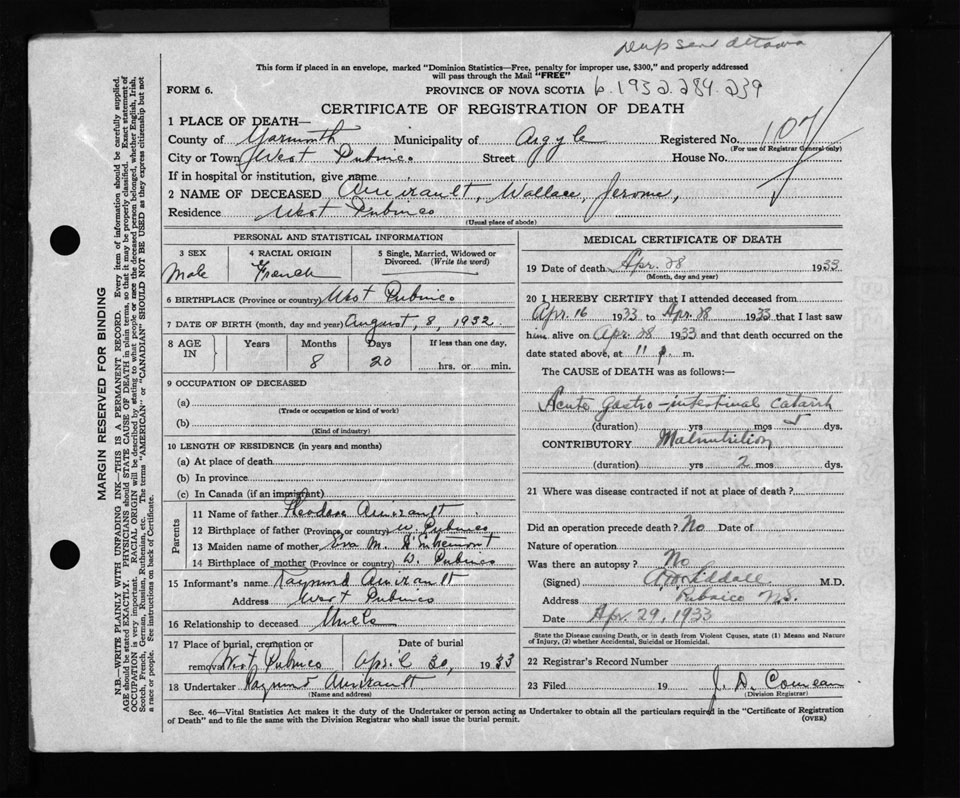 Dup sent Ottawa
This form if placed in an envelope, marked "Dominion Statistics—Free, penalty for improper use, $300," and properly addressed
will pass through the Mail "FREE"
FORM 6.
PROVINCE OF NOVA SCOTIA b. 1932. 284. 239
CERTIFICATE OF REGISTRATION OF DEATH
1 PLACE OF DEATH—
County of Yarmouth Municipality of Argyle Registered No. 107
(For use of Registrar General only)
City or Town West Pubnico Street House No.
If in hospital or institution, give name
2 NAME OF DECEASED Amirault, Wallace, Jerome,
Residence West Pubnico
(Usual place of abode)
PERSONAL AND STATISTICAL INFORMATION
3 SEX 4 RACIAL ORIGIN 5 Single, Married, Widowed or
Divorced. (Write the word)
Male French
6 BIRTHPLACE (Province or country) West Pubnico
7 DATE OF BIRTH (month, day and year) August, 8, 1932
8 AGE IN Years Months Days If less than one day,
8 20 hrs. or min.
9 OCCUPATION OF DECEASED
(a)
(Trade or occupation or kind of work)
(b)
(Kind of industry)
10 LENGTH OF RESIDENCE (in years and months)
(a) At place of death
(b) In province
(c) In Canada (if an immigrant)
Parents
11 Name of father Theodore Amirault
12 Birthplace of father (Province or country) W. Pubnico
13 Maiden name of mother Eva M. D'Entremont
14 Birthplace of mother (Province or country) Pubnico
15 Informant's name Raymond Amirault
Address West Pubnico
16 Relationship to deceased Uncle
17 Place of burial, cremation or Date of burial
removal West Pubnico April 30, 1933
18 Undertaker Raymond Amirault
(Name and address)
MEDICAL CERTIFICATE OF DEATH
19 Date of death Apr. 28 1933
(Month, day and year)
20 I HEREBY CERTIFY that I attended deceased from
Apr. 16 1933 to Apr. 28 1933 that I last saw
him alive on Apr. 28 1933 and that death occurred on the
date stated above, at 11 p. m.
The CAUSE of DEATH was as follows:—
Acute gastro-intestinal catarrh
(duration) yrs mos 5 dys.
CONTRIBUTORY Malnutrition
(duration) yrs 2 mos dys.
21 Where was disease contracted if not at place of death?
Did an operation precede death? No Date of
Nature of operation
Was there an autopsy? No
(Signed) M.D.
Address Pubnico N.S.
Date Apr. 29, 1933
State the Disease causing Death, or in death from Violent Causes, state (1) Means and Nature
of Injury, (2) whether Accidental, Suicidal or Homicidal.
22 Registrar's Record Number
23 Filed 19 J. D. Comeau
(Division Registrar)
Sec. 46—Vital Statistics Act makes it the duty of the Undertaker or person acting as Undertaker to obtain all the particulars required in the "Certificate of Registration
of Death" and to file the same with the Division Registrar who shall issue the burial permit. (OVER)
MARGIN RESERVED FOR BINDING
N.B.—WRITE PLAINLY, WITH UNFADING INK—THIS IS A PERMANENT RECORD. Every item of information should be carefully supplied.
AGE should be stated EXACTLY. PHYSICIANS should STATE CAUSE OF DEATH in plain terms, so that it may be properly classified. Exact statement of
OCCUPATION is very important. RACIAL ORIGIN will be described by stating to what people or race the deceased person belonged, whether English, Irish,
Scotch, French, German, Russian, Ruthenian, etc. The terms "AMERICAN" or "CANADIAN" SHOULD NOT BE USED as they express citizenship but not
a race or people. See instructions on back of Certificate.